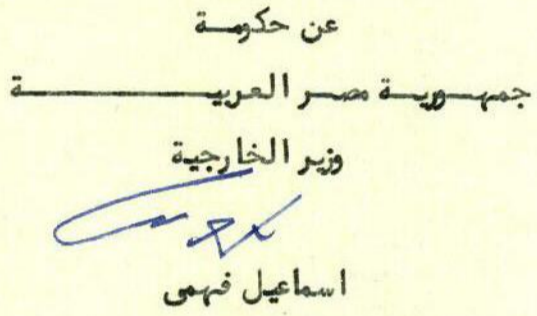 عن حكومة
جمهورية مصر العربية
وزير الخارجية
اسماعيل فهمى